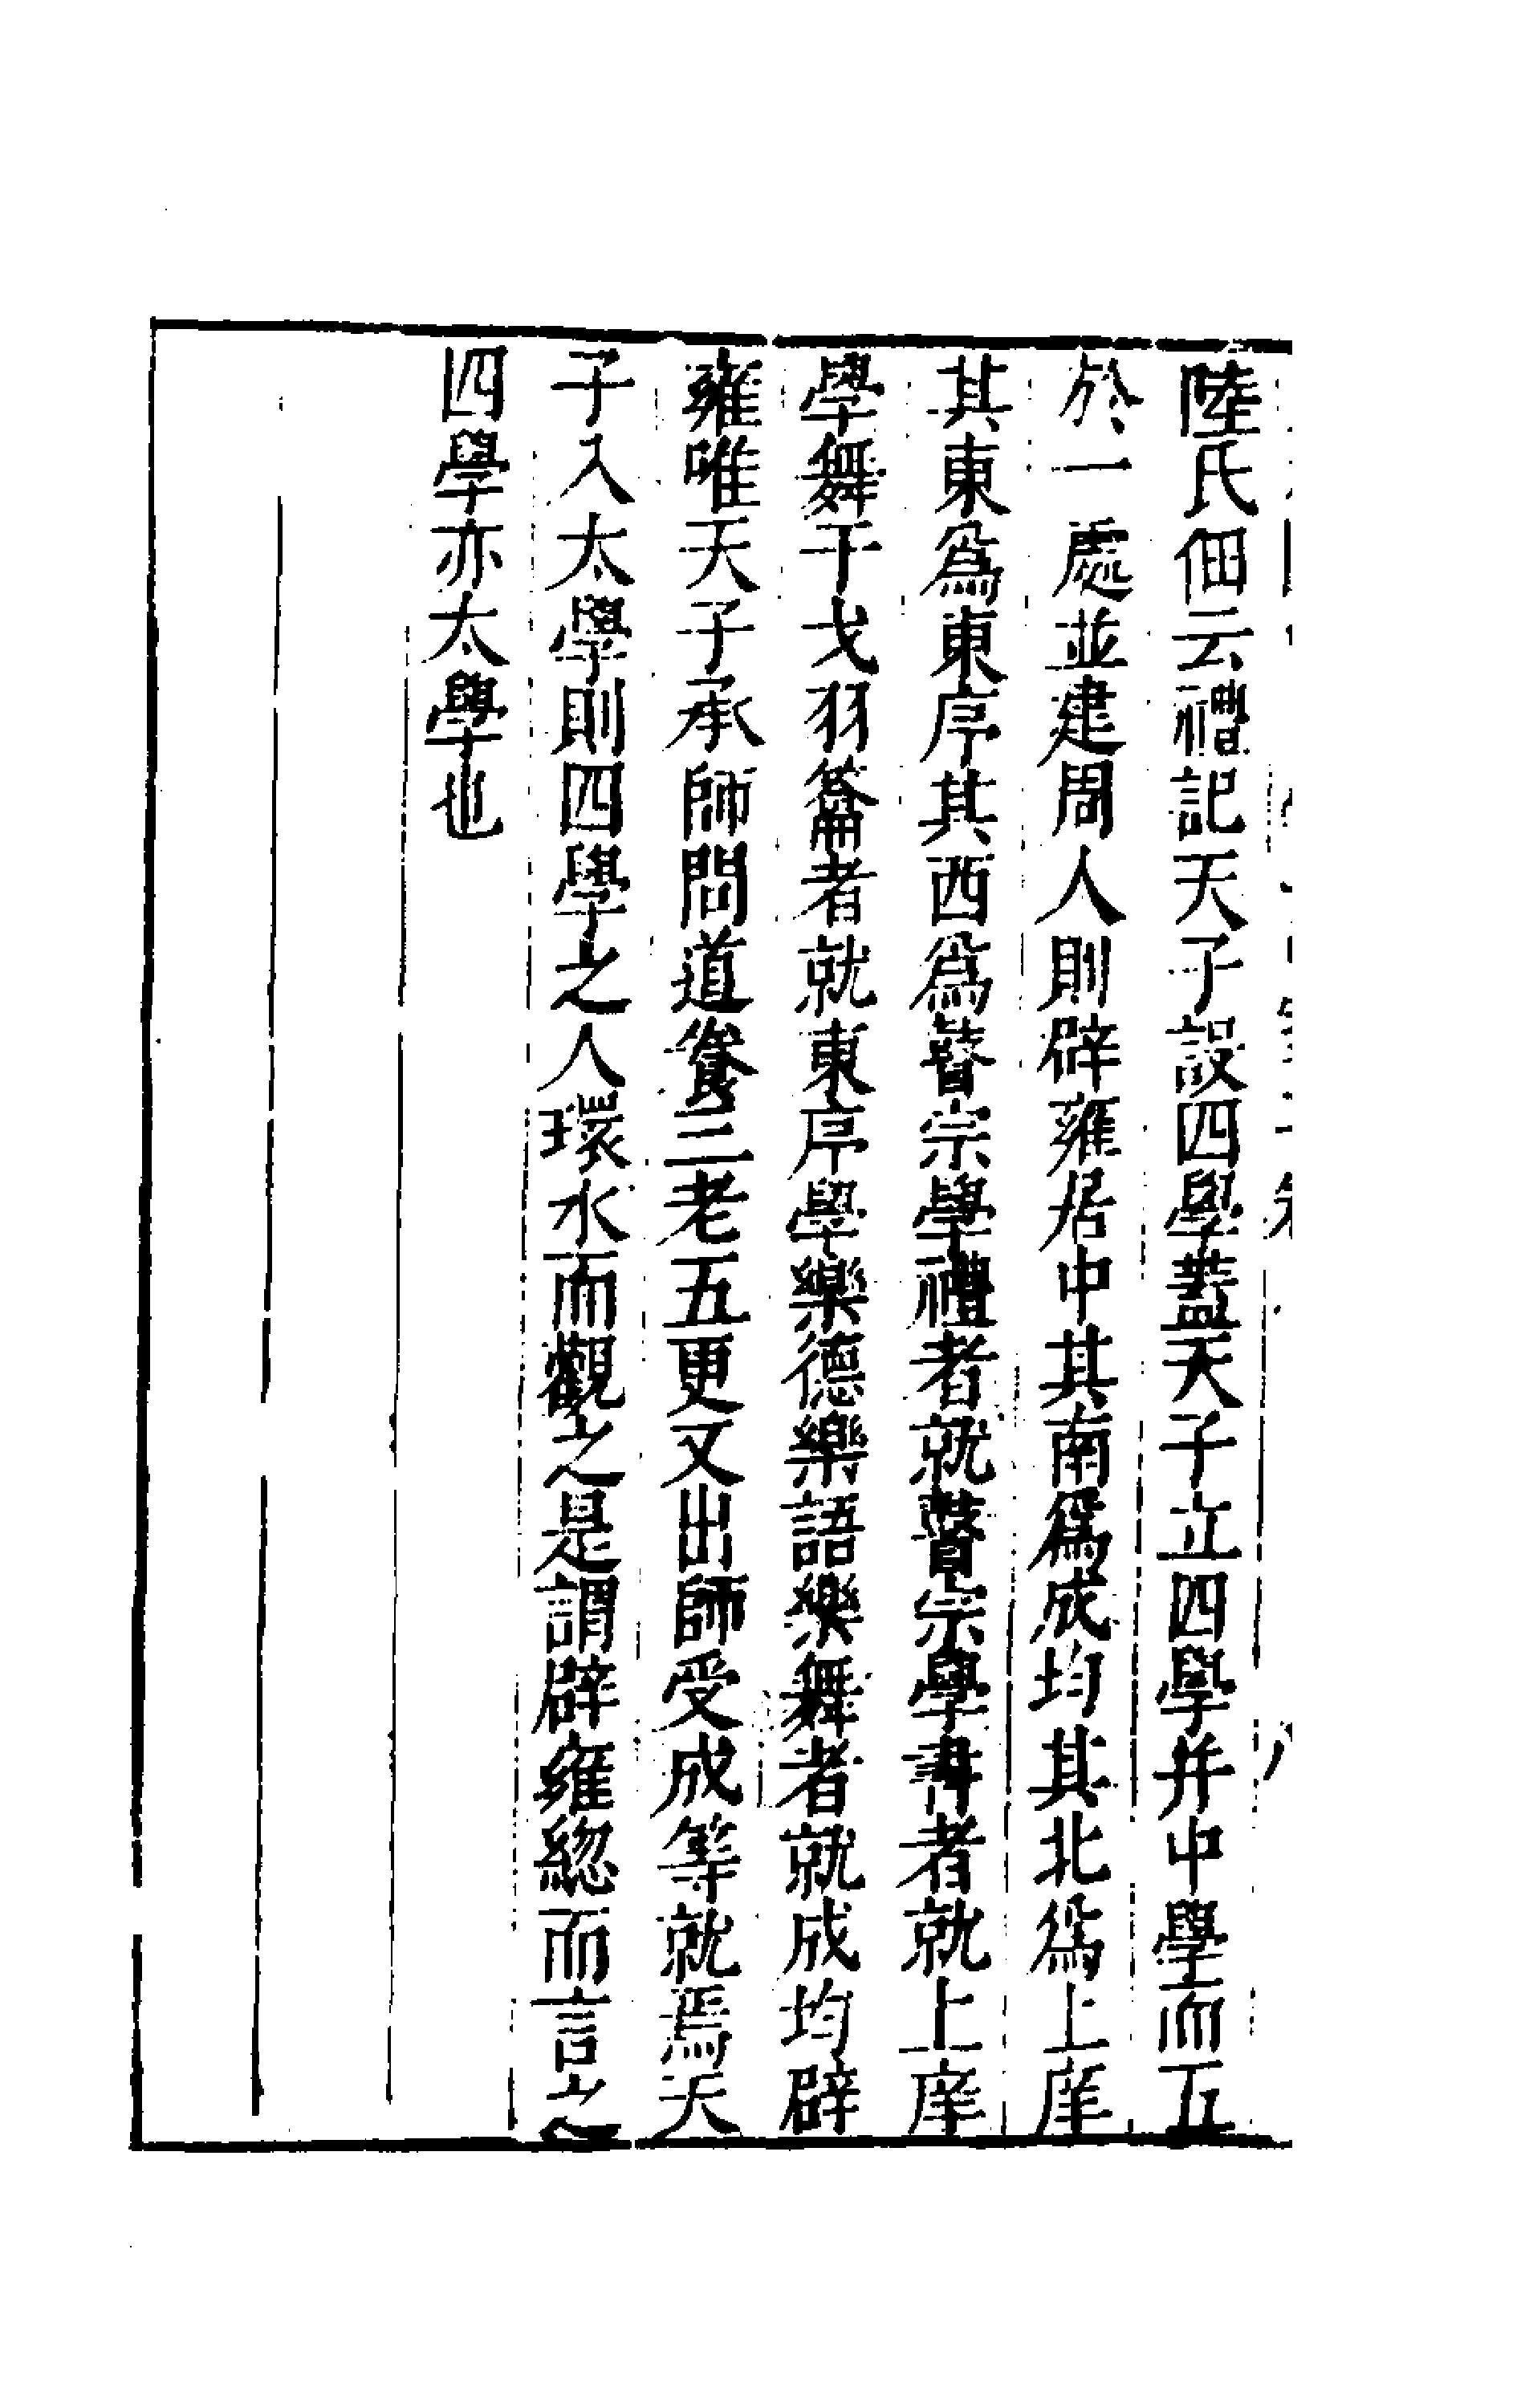 陸氏佃云禮記天子設四學蓋天子立四學并中學而五
於一處並建周人則辟雍居中其南爲成均其北爲上庠
其東爲東序其西爲瞽宗學禮者就瞽宗學書者就上庠
學舞干戈羽籥者就東序學樂德樂語樂舞者就成均辟
雍唯天子承師問道養三老五更又出師受成等就焉天
子入太學則四學之人環水而觀之是謂辟雍總而言之
四學亦太學也